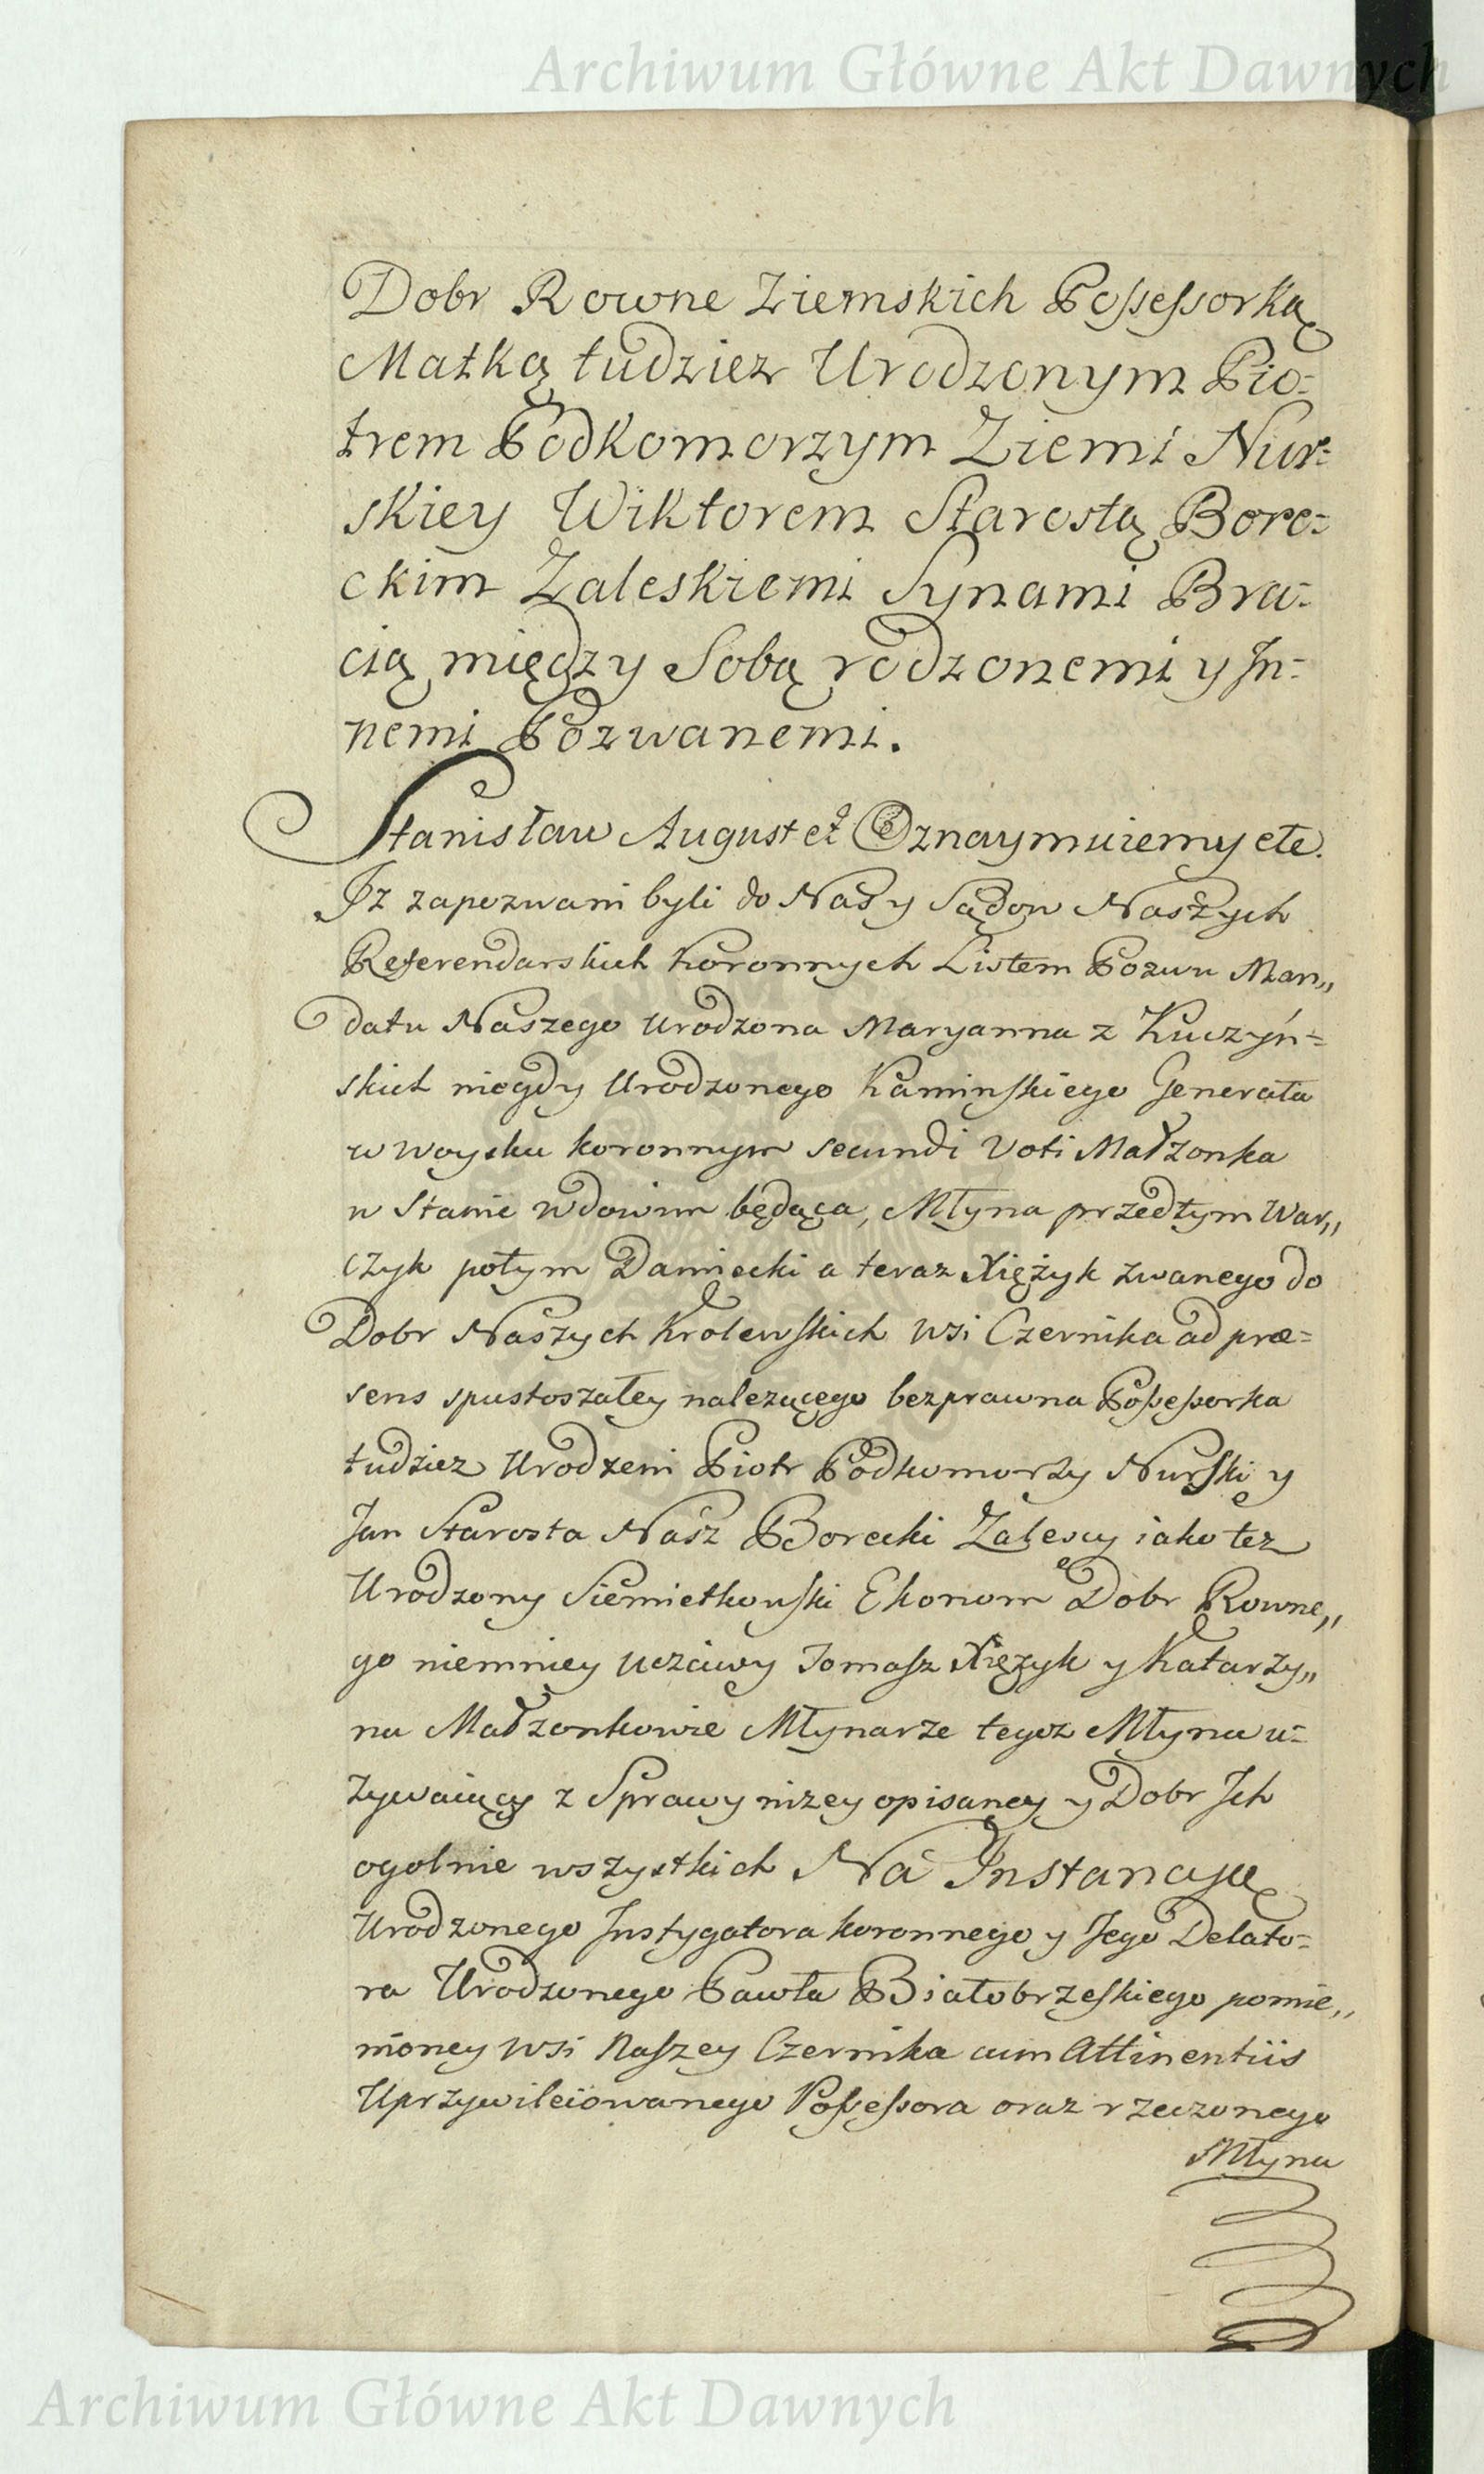 Archiwum Główne Akt Dawnych
Dobr Rowne Ziemskich Possessorką
Matką tudziez Urodzonym Pio=
trem Podkomorzym Ziemi Nur=
skiey Wiktorem Starostą Bore=
ckim Zaleskiemi Synami Bra=
cią między Sobą rodzonemi y In=
nemi Pozwanemi.
Stanisław August etc Oznaymuiemy etc.
Iz zapozwani byli do Nas y Sądow Naszych
Referendarskich Koronnych Listem Pozwu Man„
datu Naszego Urodzona Maryanna z Kuczyń=
skich niegdy Urodzonego Kaminskiego Generała
w Woysku koronnym secundi Voti Małzonka
w Stanie wdowim będąca, Młyna przedtym War„
czyk potym Daniecki a teraz Xiężyk zwanego do
Dobr Naszych Krolewskich wsi Czernika ad præ=
sens spustoszałey nalezącego bezprawna Possessorka
tudziez Urodzeni Piotr Podkomorzy Nurski y
Jan Starosta Nasz Borecki Zalescy iako tez
Urodzony Siemietkowski Ekonom Dobr Rowne„
go niemniey uczciwy Tomasz Xięzyk y Katarzy„
na Małzonkowie Młynarze tegoz Młyna u=
zywaiący z Sprawy nizey opisaney y Dobr Ich
ogolnie wszystkich Na Instancyą
Urodzonego Instygatora koronnego y Jego Delato=
ra Urodzonego Pawła Białobrzeskiego pomie„
nioney wsi Naszey Czernika cum Attinentiis
Uprzywileiowanego Possessora oraz rzeczonego
Młyna
Archiwum Główne Akt Dawnych